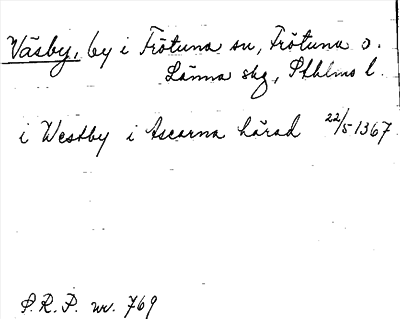 Väsby, by i Frötuna sn, Frötuna o.
Länna skg, Sthlms l.
i Westby i Ascarna härad 22/5 1367
S.R.P. nr. 769